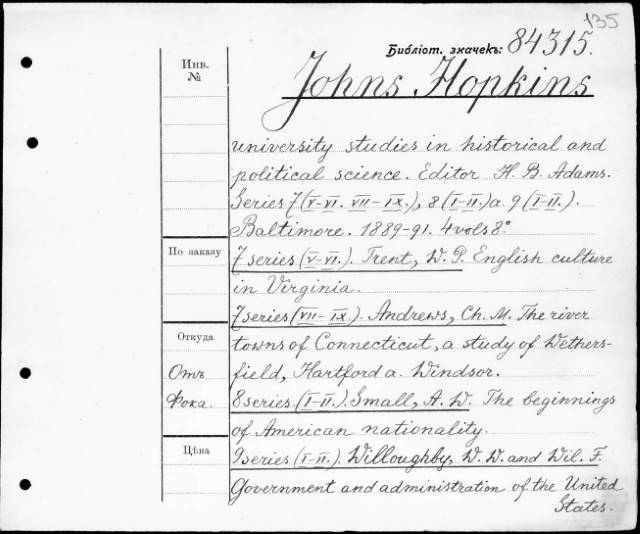 135
Библіот. значекъ: 84315.
Инв.
№
Johns Hopkins
university studies in historical and
political science. Editor H. B. Adams.
Series 7 (V-VI. VII-IX.), 8 (I-II.) a. 9 (I-II.).
Baltimore. 1889-91. 4 vols 8°
По заказу
7 series (V-VI.). Trent, W. P. English culture
in Virginia.
7 series (VII-IX.). Andrews, Ch. M. The river
Откуда
towns of Connecticut, a study of Wethers-
Отъ
field, Hartford a. Windsor.
Фока.
8 series (I-II.). Small, A. W. The beginnings
of American nationality.
Цѣна
9 series (I-II.). Willoughby, W. W. and Wil. F.
Government and administration of the United
States.